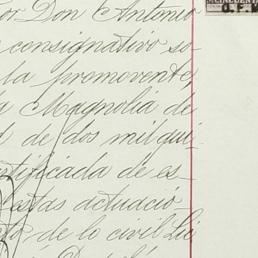 or Don Antonio
consignativo so
la promovente,
a Magnolia de
d de dos mil qui
rtificada de es
estas actuació
de lo civil Li
D.F.M